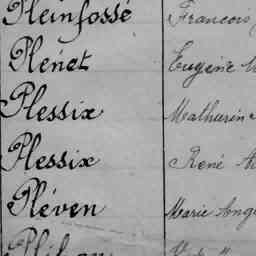 Pleinfossé François
Plénet Eugène
Plessix Mathurin
Plessix René
Pléven Marie Ang